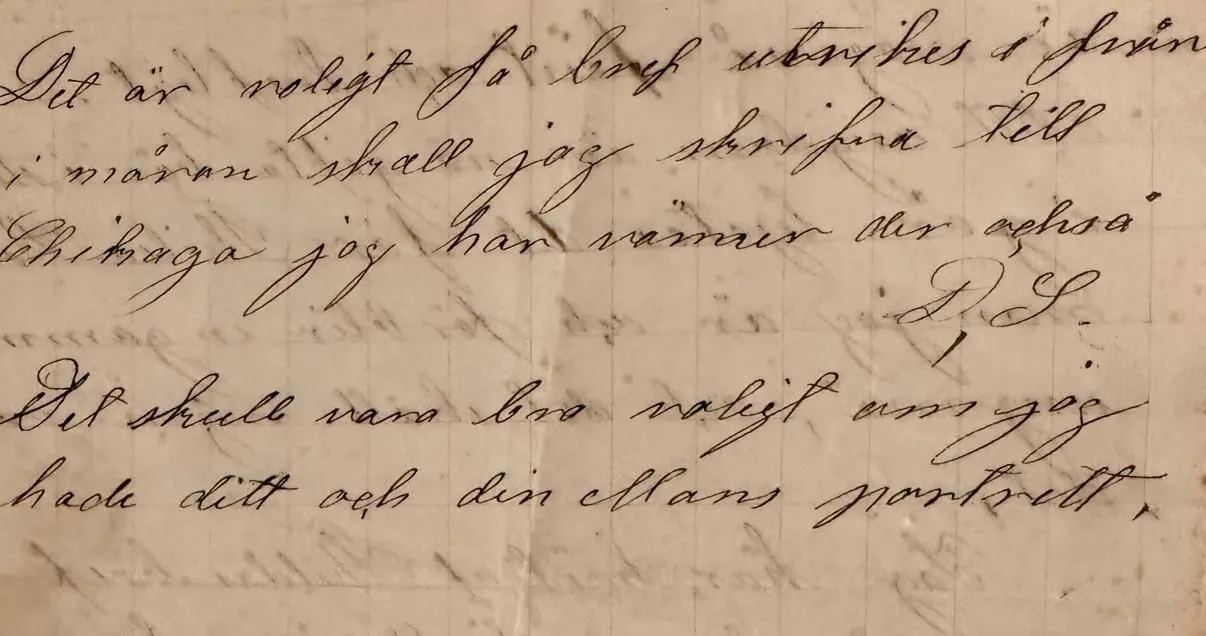 Det är roligt få bref utrikes i från
i måran skall jag skrifva till
Chikago jag har vänner der också
D. S.
Det skull vara bra roligt om jag
hade ditt och din Mans portrett.